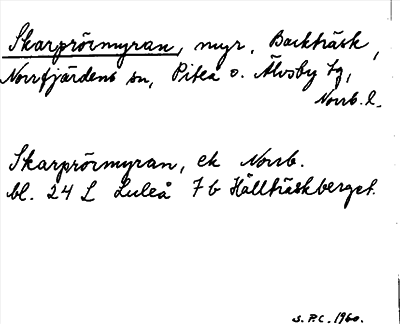 Skarprörmyran, myr, Backträsk,
Norrfjärdens sn, Piteå o. Älvsby tg,
Norrb. l.
Skarprörmyran, ek Norrb.
bl. 24 L Luleå 7 b Hällträskberget.
s. P.C. 1960.